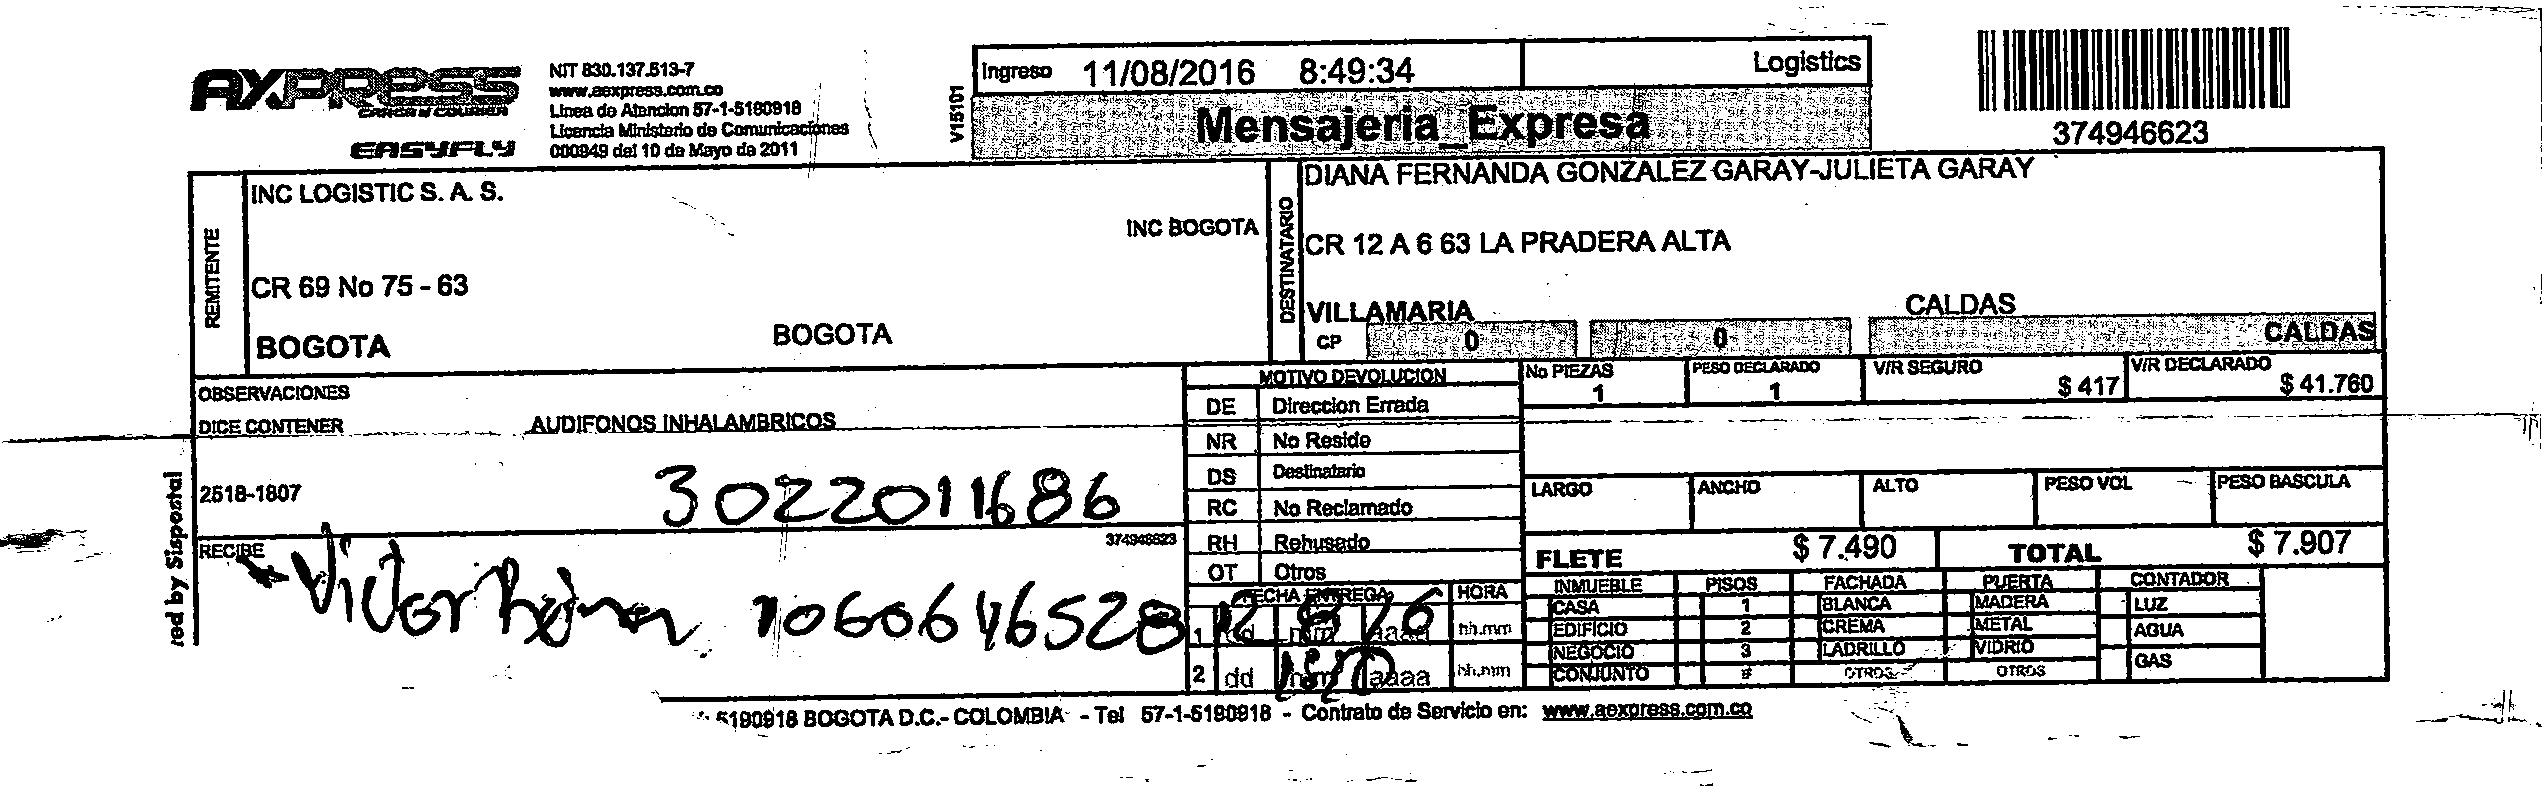 AXPRESS
CARGA & COURIER
EASYFLY
NIT 830.137.513-7
www.aexpress.com.co
Linea de Atencion 57-1-5190918
Licencia Ministerio de Comunicaciones
000949 del 10 de Mayo de 2011
V15101
Ingreso 11/08/2016 8:49:34 Logistics
Mensajeria_Expresa
374946623
REMITENTE
INC LOGISTIC S. A. S.
INC BOGOTA
CR 69 No 75 - 63
BOGOTA BOGOTA
DESTINATARIO
DIANA FERNANDA GONZALEZ GARAY-JULIETA GARAY
CR 12 A 6 63 LA PRADERA ALTA
VILLAMARIA CALDAS
CP 0 0 CALDAS
OBSERVACIONES
DICE CONTENER AUDIFONOS INHALAMBRICOS
2518-1807 3022011686
RECIBE 374946623
Victor 1060646528
red by Sispostal
MOTIVO DEVOLUCION
DE Direccion Errada
NR No Reside
DS Destinatario
RC No Reclamado
RH Rehusado
OT Otros
FECHA ENTREGA HORA
1 dd mm aaaa hh.mm
12 8 16
2 dd mm aaaa hh.mm
No PIEZAS PESO DECLARADO V/R SEGURO V/R DECLARADO
1 1 $ 417 $ 41.760
LARGO ANCHO ALTO PESO VOL PESO BASCULA
FLETE $ 7.490 TOTAL $ 7.907
INMUEBLE PISOS FACHADA PUERTA CONTADOR
CASA 1 BLANCA MADERA LUZ
EDIFICIO 2 CREMA METAL AGUA
NEGOCIO 3 LADRILLO VIDRIO GAS
CONJUNTO # OTROS OTROS
5190918 BOGOTA D.C.- COLOMBIA - Tel 57-1-5190918 - Contrato de Servicio en: www.aexpress.com.co